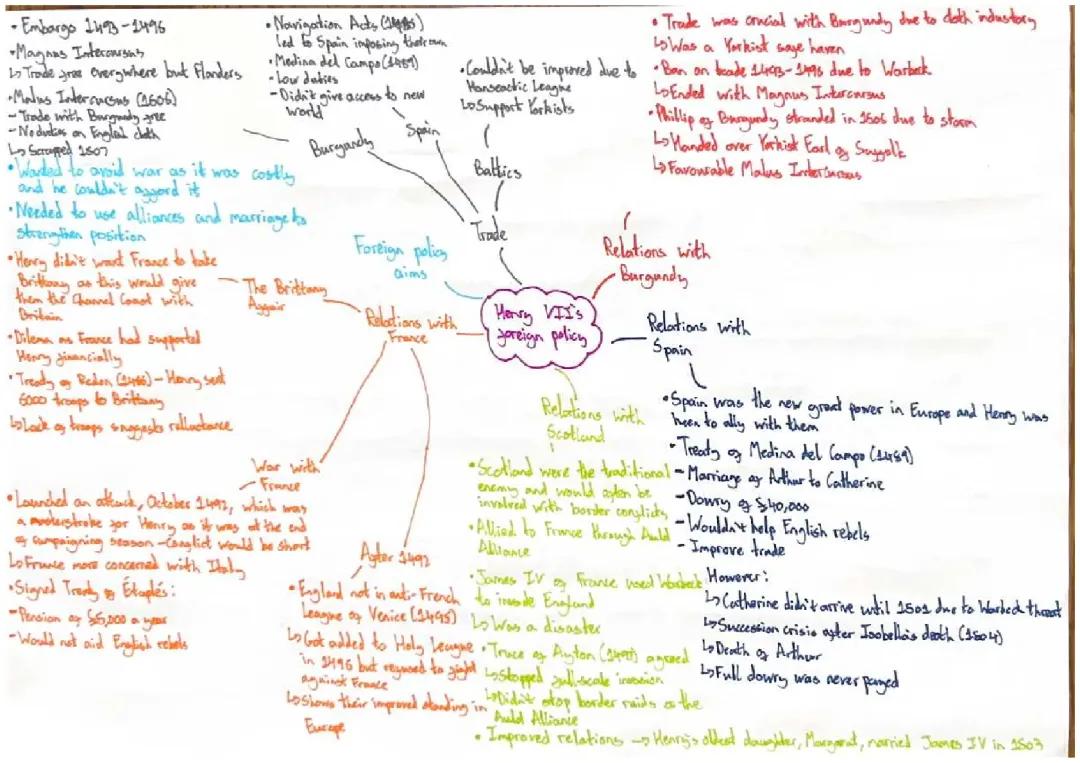 • Embargo 1493-1496
• Magnus Intercursus
↳ Trade free everywhere but Flanders
• Malus Intercursus (1506)
- Trade with Burgundy free
- No duties on English cloth
↳ Scrapped 1507
• Navigation Acts (1485)
led to Spain imposing their own
• Medina del Campo (1489)
- Low duties
- Didn't give access to new
world
• Couldn't be improved due to
Hanseatic League
↳ Support Yorkists
Burgundy
Spain
Baltics
Trade
• Trade was crucial with Burgundy due to cloth industory
↳ Was a Yorkist safe haven
• Ban on trade 1493-1496 due to Warbeck
↳ Ended with Magnus Intercursus
• Phillip of Burgundy stranded in 1506 due to storm
↳ Handed over Yorkist Earl of Suffolk
↳ Favourable Malus Intercursus
Relations with
Burgundy
• Wanted to avoid war as it was costly
and he couldn't afford it
• Needed to use alliances and marriage to
strengthen position
Foreign policy
aims
Henry VII's
foreign policy
• Henry didn't want France to take
Brittany as this would give
them the Channel Coast with
Britain
• Dilema as France had supported
Henry financially
• Treaty of Redon (1489) - Henry sent
6000 troops to Brittany
↳ Lack of troops suggests relluctance
The Brittany
Affair
Relations with
France
War with
France
• Launched an attack, October 1492, which was
a masterstroke for Henry as it was at the end
of campaigning season - Conflict would be short
↳ France more concerned with Italy
• Signed Treaty of Étaples:
- Pension of £5,000 a year
- Would not aid English rebels
After 1492
• England not in anti-French
League of Venice (1495)
↳ Got added to Holy League
in 1496 but refused to fight
against France
↳ Shows their improved standing in
Europe
Relations with
Scotland
• Scotland were the traditional
enemy and would often be
involved with border conflicts
• Allied to France through Auld
Alliance
• James IV of France used Warbeck
to invade England
↳ Was a disaster
• Truce of Ayton (1497) agreed
↳ Stopped full-scale invasion
↳ Didn't stop border raids or the
Auld Alliance
• Improved relations → Henry's oldest daughter, Margaret, married James IV in 1503
Relations with
Spain
• Spain was the new great power in Europe and Henry was
keen to ally with them
• Treaty of Medina del Campo (1489)
- Marriage of Arthur to Catherine
- Dowry of £40,000
- Wouldn't help English rebels
- Improve trade
However:
↳ Catherine didn't arrive until 1501 due to Warbeck threat
↳ Succession crisis after Isobella's death (1504)
↳ Death of Arthur
↳ Full dowry was never payed